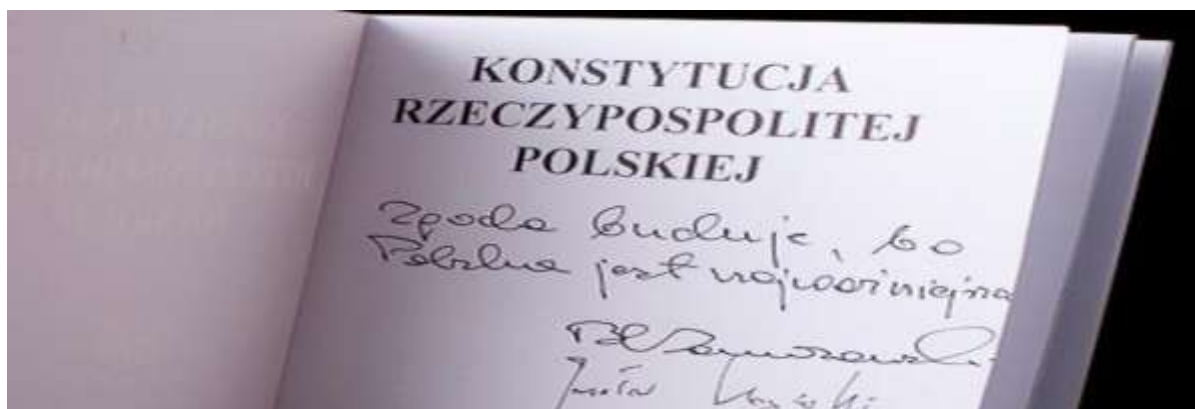 KONSTYTUCJA
RZECZYPOSPOLITEJ
POLSKIEJ
Zgoda buduje, bo
Polska jest najważniejsza